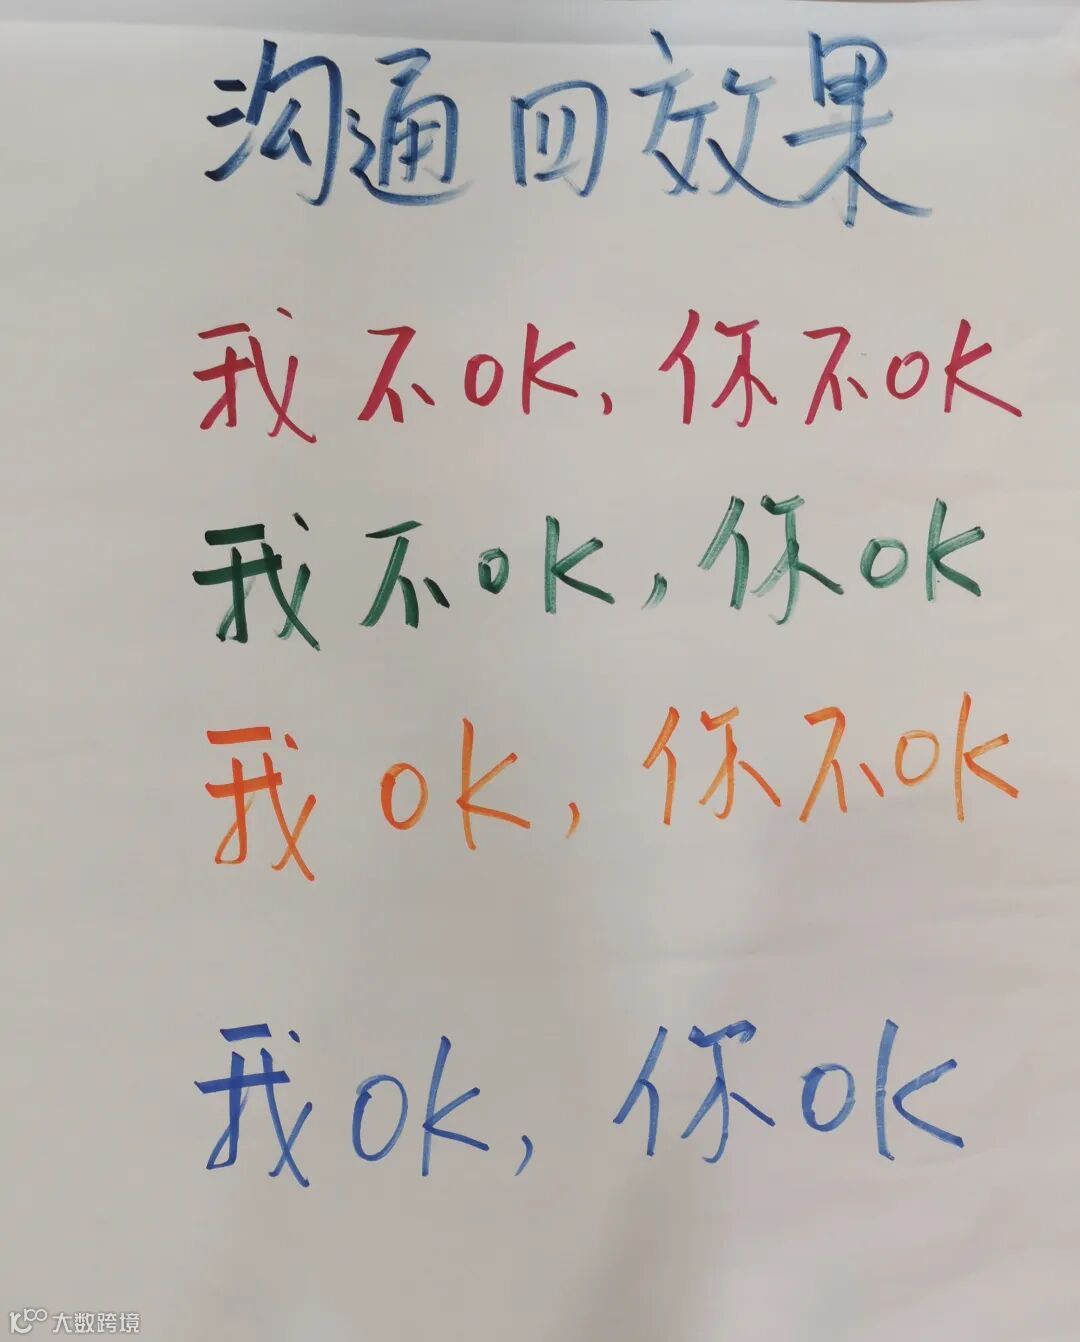 沟通四效果
我不OK,你不OK
我不OK,你OK
我OK,你不OK
我OK,你OK
大数跨境